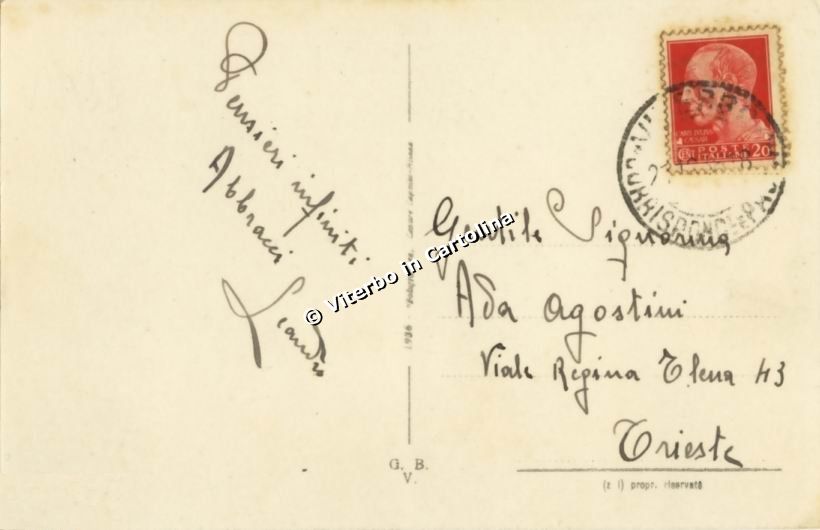 Pensieri infiniti
Abbracci
Leandro
© Viterbo in Cartolina
1936
G. B.
V.
CENT
POSTE
ITALIANE
20
CORRISPOND
Gentile Signorina
Ada Agostini
Viale Regina Elena 43
Trieste
(z i) propr. riservata